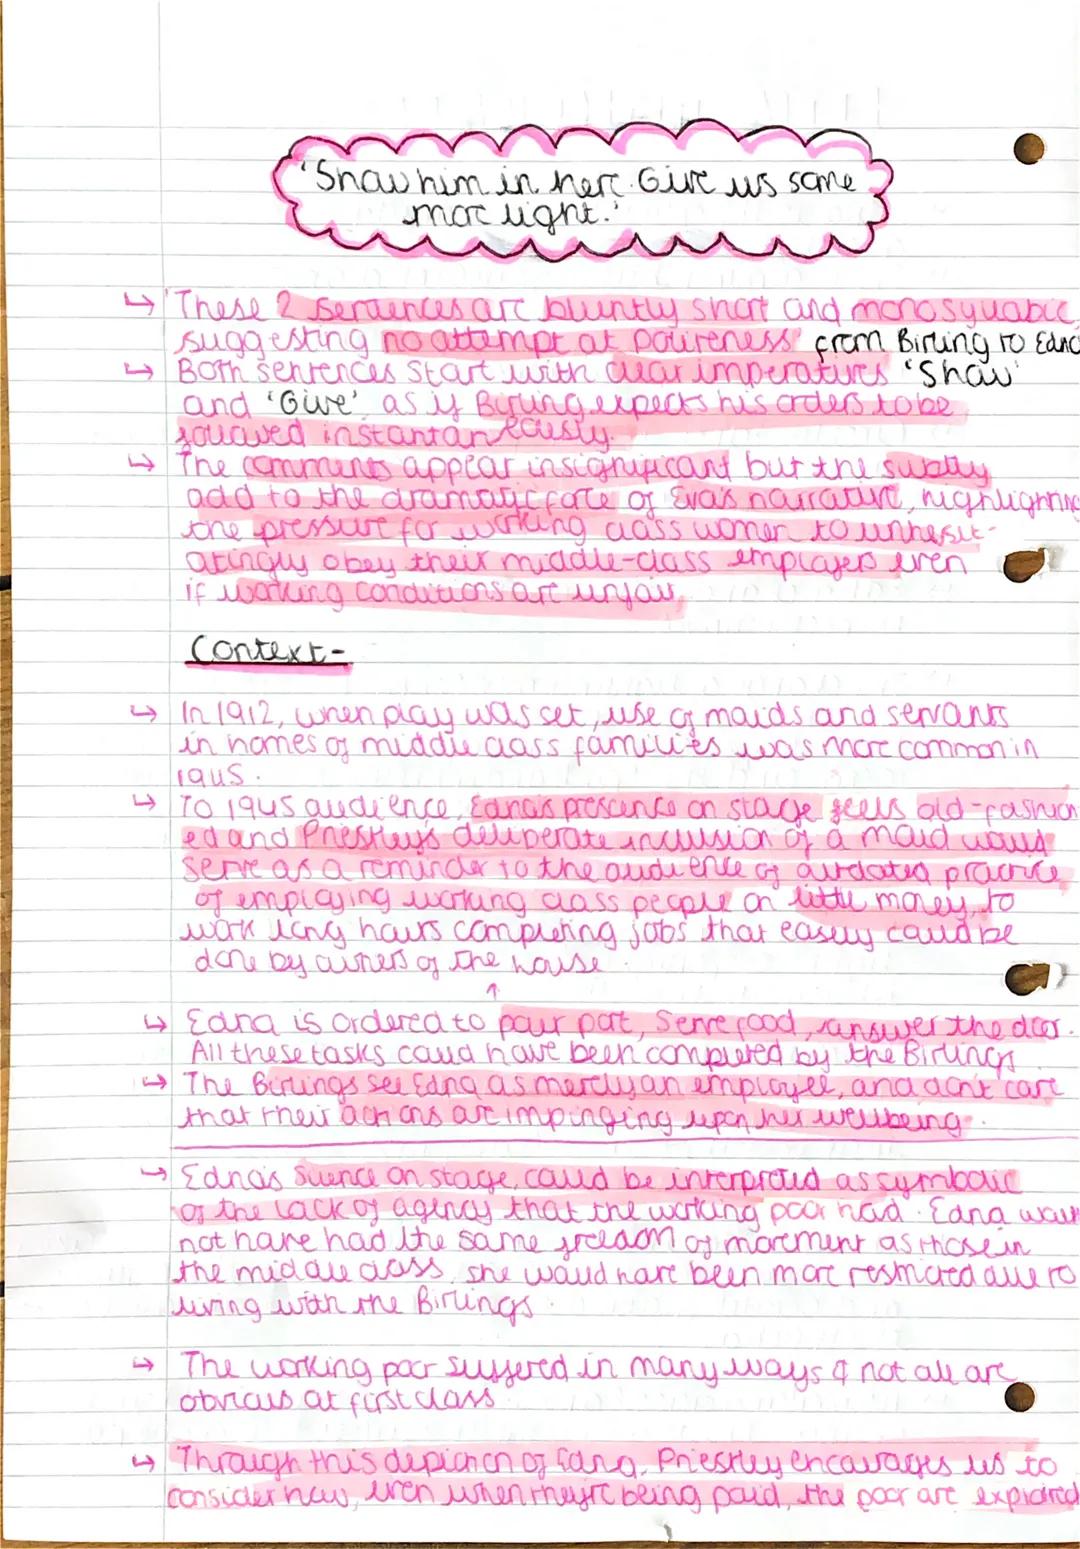 'Show him in here. Give us some
more light.'
↳ These 2 sentences are bluntly short and monosyllabic,
suggesting no attempt at politeness from Birling to Edna
↳ Both sentences start with clear imperatives 'Show'
and 'Give' as if Birling expects his orders to be
followed instantaneously.
↳ The comments appear insignificant but the subtly
add to the dramatic force of Eva's narrative, highlighting
the pressure for working class women to unhesit-
atingly obey their middle-class employers even
if working conditions are unfair.
Context-
↳ In 1912, when play was set, use of maids and servants
in homes of middle class families was more common in
1945.
↳ To 1945 audience, Edna's presence on stage feels old-fashion
ed and Priestley's deliberate inclusion of a maid would
serve as a reminder to the audience of outdated practice
of employing working class people on little money, to
work long hours completing jobs that easily could be
done by owners of the house
↑
↳ Edna is ordered to pour port, serve food, answer the door.
All these tasks could have been completed by the Birlings
↳ The Birlings see Edna as merely an employee, and don't care
that their actions are impinging upon her wellbeing.
↳ Edna's silence on stage, could be interpreted as symbolic
of the lack of agency that the working poor had. Edna would
not have had the same freedom of movement as those in
the middle class, she would have been more restricted due to
living with the Birlings.
↳ The working poor suffered in many ways & not all are
obvious at first class
↳ Through this depiction of Edna, Priestley encourages us to
consider how, even when they're being paid, the poor are exploited